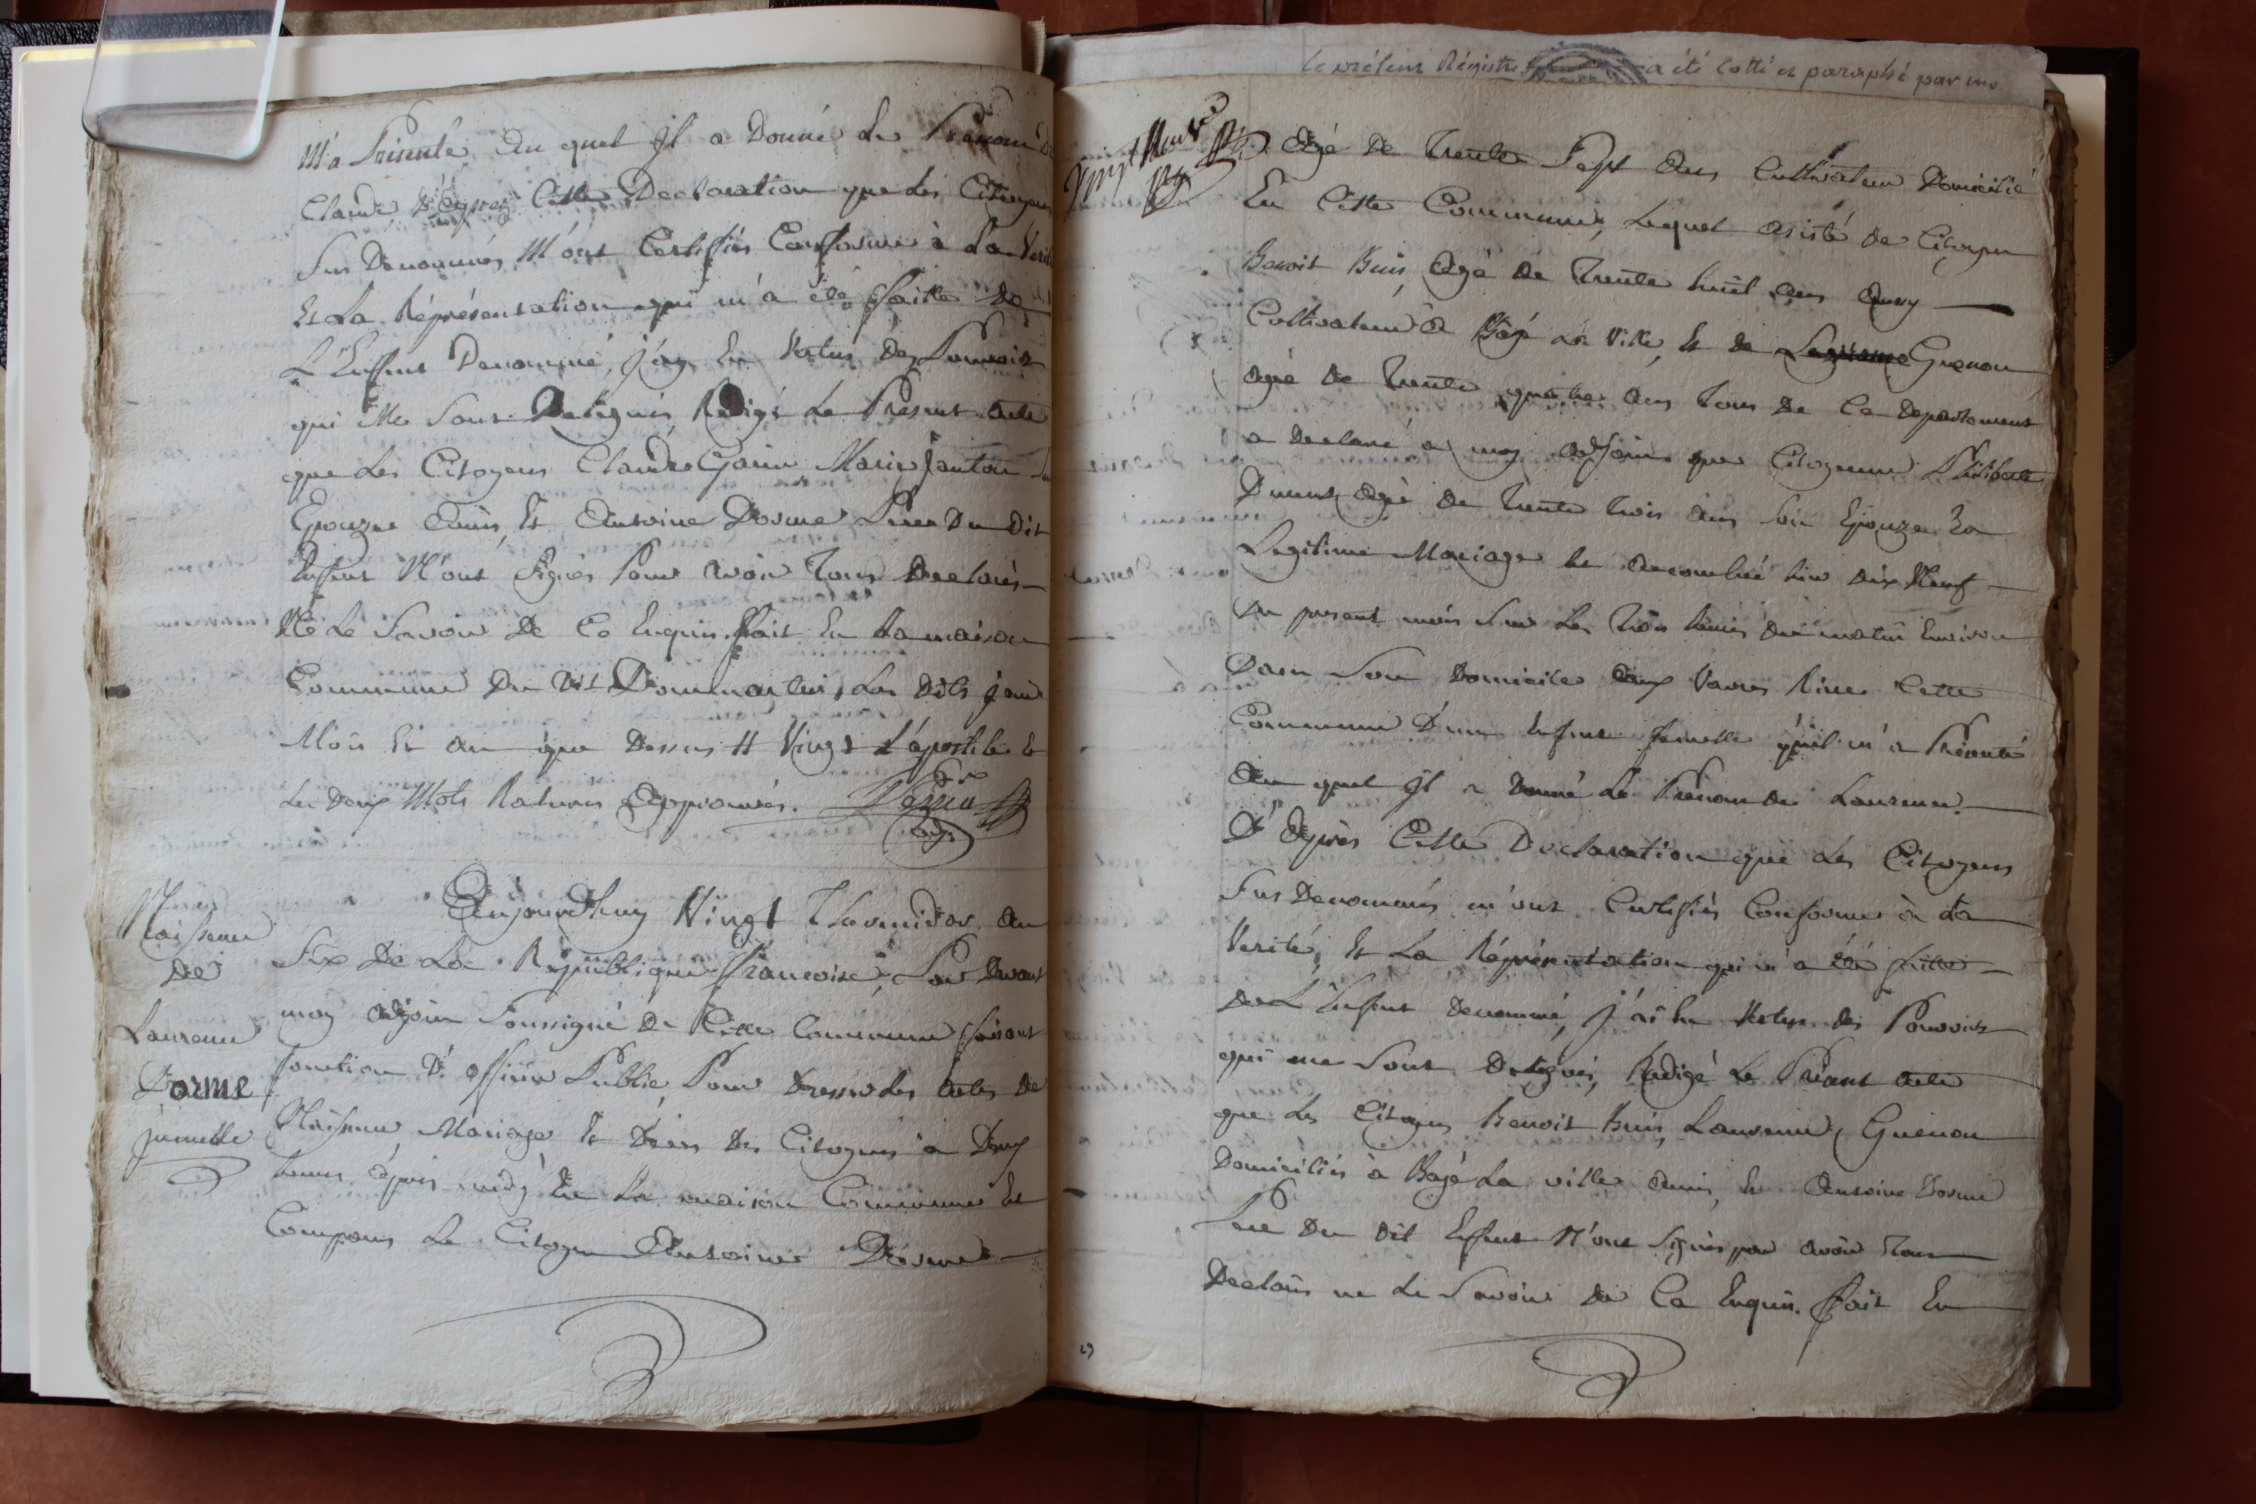 M'a Présenté Au quel Il a Donné Le Prénom de
Claude D'Après Cette Declaration que Les Citoyens
Sus Denommés M'ont Certifiés Conforme à La Verité
Et La Réprésentation qui m'a été faitte De
L'Enfant Denommé, j'ay En Vertus Des Pouvoirs
qui Me Sont Delegués, Redigé Le Present Acte
que Les Citoyens Claude Garin Marie Janton Son
Epouze Amis, Et Antoine Dorme Pere Du Dit
Enfant N'ont Signés Pour Avoir Tous Declarés
Ne Le Savoir De Ce Enquis. Fait En La maison
Commune Du Dit Dommartin, Les Dits jour
Mois Et An que Dessus # Vingt L'apostile Et
Les Deux Mots Raturés Approuvés.
Adj.
Naissance
De
Laurence
Dorme
jumelle
Aujourd'huy Vingt Thermidor An
Six De La République Françoise, Par Devant
moy Adjoin Soussigné De Cette Commune faisant
fonction D'officier Public, Pour Dresser Les Actes De
Naissance, Mariage Et Décès Des Citoyens à Deux
heures après midy En La maison Commune Est
Comparus Le Citoyen Antoine Dorme
le présent Régistre a été cotté et paraphé par
Vingt Neuf
Agé De Trente Sept Ans Cultivateur Domicilié
En Cette Commune, Lequel Assisté de Citoyen
Benoit Buis, Agé De Trente huit Ans Amy
Cultivateur à Bagé La Ville, Et De Guenon
Agé De Trente quatre Ans Tous De Ce Département
a Declaré à moy Adjoin que Citoyenne Philiberte
Agé De Trente Trois Ans Son Epouze En
Legitime Mariage Est Accouchée hier Dix Neuf
Du present mois Sur Les Trois heures Du matin Environ
Dans Son Domicile Aux Rière Cette
Commune D'une Enfant femelle qu'il m'a Présenté
Au quel Il a Donné Le Prénom De Laurence
D'Après Cette Declaration que Les Citoyens
Sus Denommés m'ont Certifiés Conforme à La
Verité, Et La Réprésentation qui m'a Été faitte
De L'Enfant Denommé, j'ai En Vertus Des Pouvoirs
qui me Sont Delegués, Redigé Le Présent Acte
que Les Citoyens Benoit Buis, Laurence Guenon
Domiciliés à Bagé La ville Amis, Et Antoine Dorme
Pere Du Dit Enfant N'ont Signés pour Avoir Tous
Declarés ne Le Savoir De Ce Enquis. Fait En
29